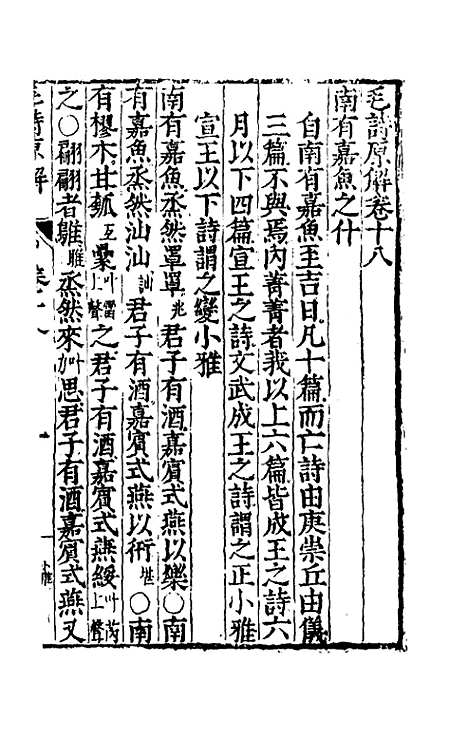 毛詩原解卷十八
南有嘉魚之什
自南有嘉魚至吉日凡十篇而亡詩由庚崇丘由儀
三篇不與焉內菁菁者莪以上六篇皆成王之詩六
月以下四篇宣王之詩文武成王之詩謂之正小雅
宣王以下詩謂之變小雅
南有嘉魚烝然罩罩兆君子有酒嘉賓式燕以樂○南
有嘉魚烝然汕汕訕君子有酒嘉賓式燕以衎堪○南
有樛木甘瓠互纍叶雷上聲之君子有酒嘉賓式燕綏叶芮上聲
之○翩翩者鵻騅烝然來叶思君子有酒嘉賓式燕又
毛詩原解 卷十八 一